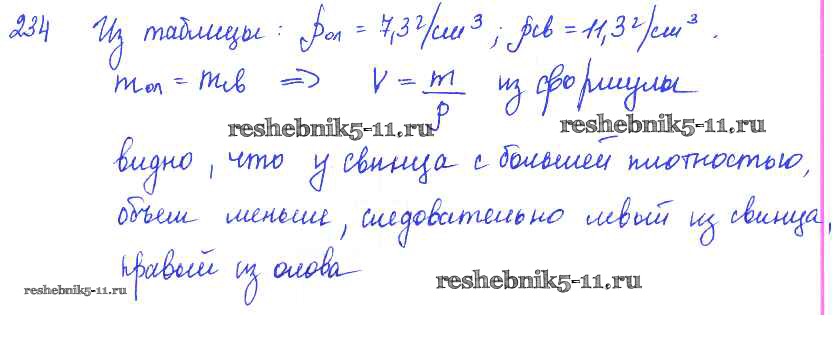 234 Из таблицы: ρол = 7,3 г/см³; ρсв = 11,3 г/см³.
mол = mсв ⇒ V = m/ρ из формулы
reshebnik5-11.ru reshebnik5-11.ru
видно, что у свинца с большей плотностью,
объем меньше, следовательно левый из свинца,
правый из олова
reshebnik5-11.ru reshebnik5-11.ru